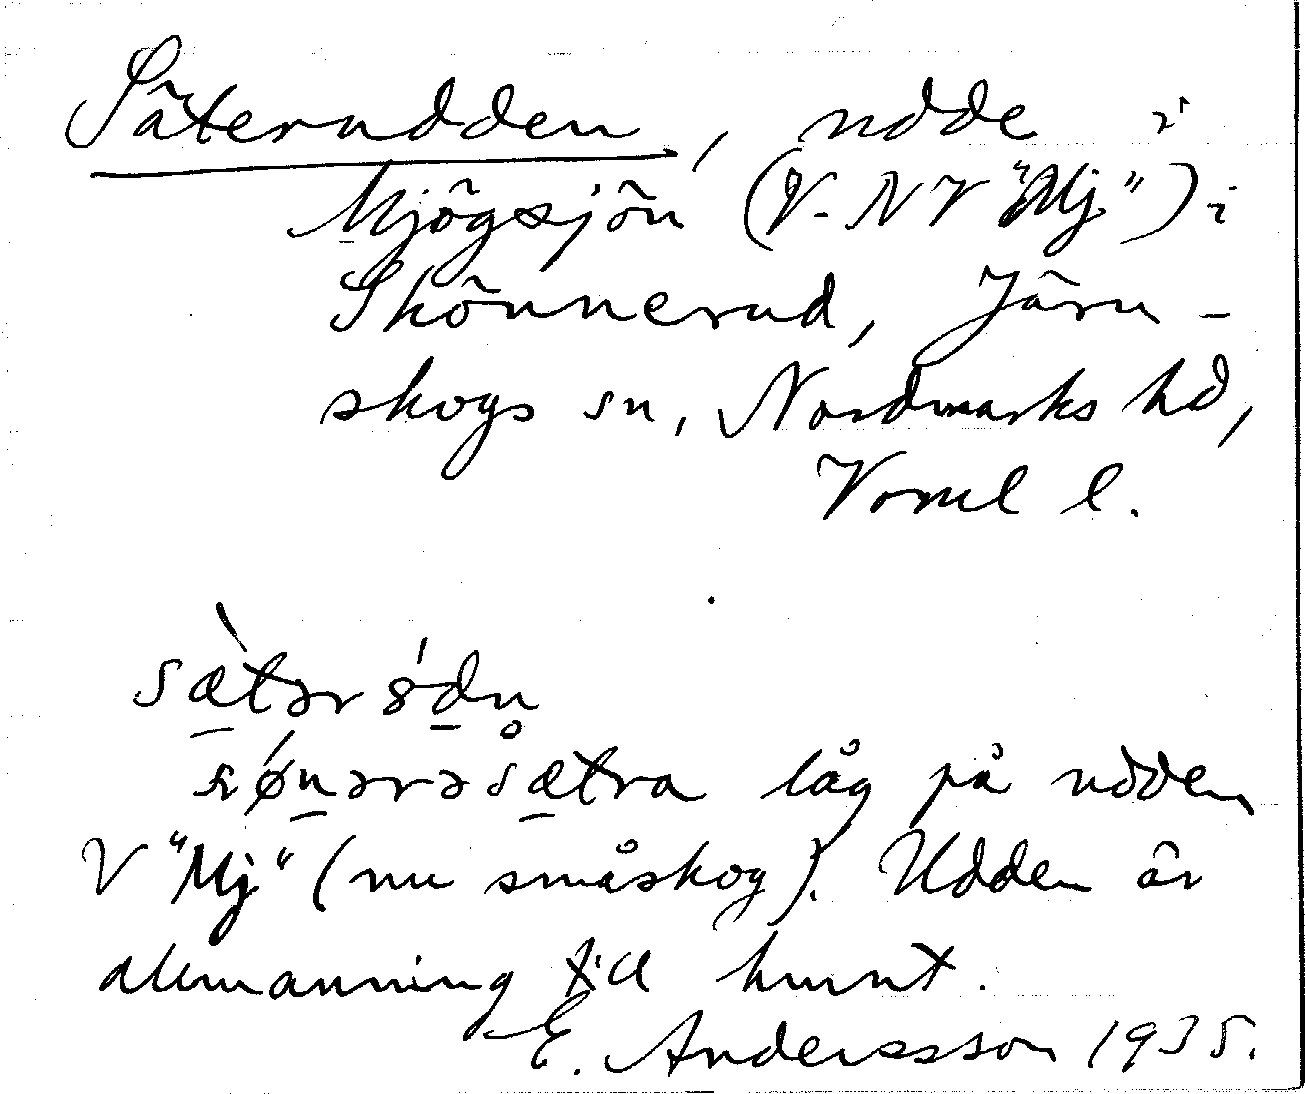 Säterudden, udde i
Mjögsjön (V-NV "Mj") i
Skönnerud, Järn-
skogs sn, Nordmarks hd,
Verml l.
sæ̀tər 8́dn̥
sǿnərəsætra låg på udden
V "Mj" (nu småskog). Udden är
allmanning till hmnt.
E. Andersson 1935.